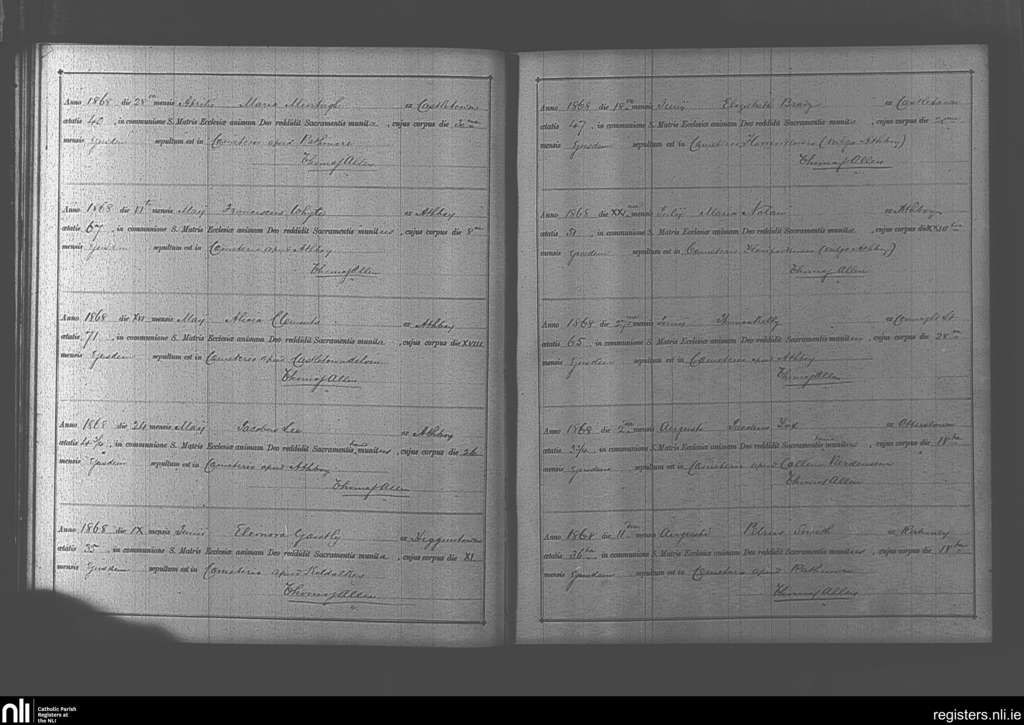 Anno 1868 die 28 mensis Aprilis Maria Murtagh ex Castletown
ætatis 40, in communione S. Matris Ecclesiæ animam Deo reddidit Sacramentis munita, cujus corpus die
mensis sepultum est in Cœmeterio apud Rathmore
Thomas Allen
Anno 1868 die VI mensis Maij Franciscus Whyte ex Athboy
ætatis 67, in communione S. Matris Ecclesiæ animam Deo reddidit Sacramentis munitus, cujus corpus die 8
mensis ejusdem sepultum est in Cœmeterio apud Athboy
Thomas Allen
Anno 1868 die XVI mensis Maij Alicia Clements ex Athboy
ætatis 71, in communione S. Matris Ecclesiæ animam Deo reddidit Sacramentis munita, cujus corpus die XVIII
mensis ejusdem sepultum est in Cœmeterio apud Castletown
Thomas Allen
Anno 1868 die 24 mensis Maij Jacobus Lee ex Athboy
ætatis, in communione S. Matris Ecclesiæ animam Deo reddidit Sacramentis munitus, cujus corpus die 26
mensis ejusdem sepultum est in Cœmeterio apud Athboy
Thomas Allen
Anno 1868 die IX mensis Junii Eleonora Gantly ex
ætatis 35, in communione S. Matris Ecclesiæ animam Deo reddidit Sacramentis munita, cujus corpus die XI
mensis ejusdem sepultum est in Cœmeterio apud
Thomas Allen
Anno 1868 die 18 mensis Junij Elizabeth ex Castletown
ætatis 47, in communione S. Matris Ecclesiæ animam Deo reddidit Sacramentis munita, cujus corpus die 20
mensis ejusdem sepultum est in Cœmeterio (vulgo Athboy)
Thomas Allen
Anno 1868 die XXI mensis Julij Maria Nolan ex Athboy
ætatis 51, in communione S. Matris Ecclesiæ animam Deo reddidit Sacramentis munita, cujus corpus die
mensis ejusdem sepultum est in Cœmeterio (vulgo Athboy)
Thomas Allen
Anno 1868 die 27 mensis Thomas Kelly ex Connaught St
ætatis 65, in communione S. Matris Ecclesiæ animam Deo reddidit Sacramentis munitus, cujus corpus die 28
mensis ejusdem sepultum est in Cœmeterio apud Athboy
Thomas Allen
Anno 1868 die mensis Augusti Jacobus Fox ex Otterstown
ætatis, in communione S. Matris Ecclesiæ animam Deo reddidit Sacramentis munitus, cujus corpus die 18
mensis ejusdem sepultum est in Cœmeterio apud
Thomas Allen
Anno 1868 die 11 mensis Augusti Petrus Smith ex
ætatis 36, in communione S. Matris Ecclesiæ animam Deo reddidit Sacramentis munitus, cujus corpus die 18
mensis ejusdem sepultum est in Cœmeterio apud Rathmore
Thomas Allen
nli Catholic Parish
Registers at
the NLI
registers.nli.ie